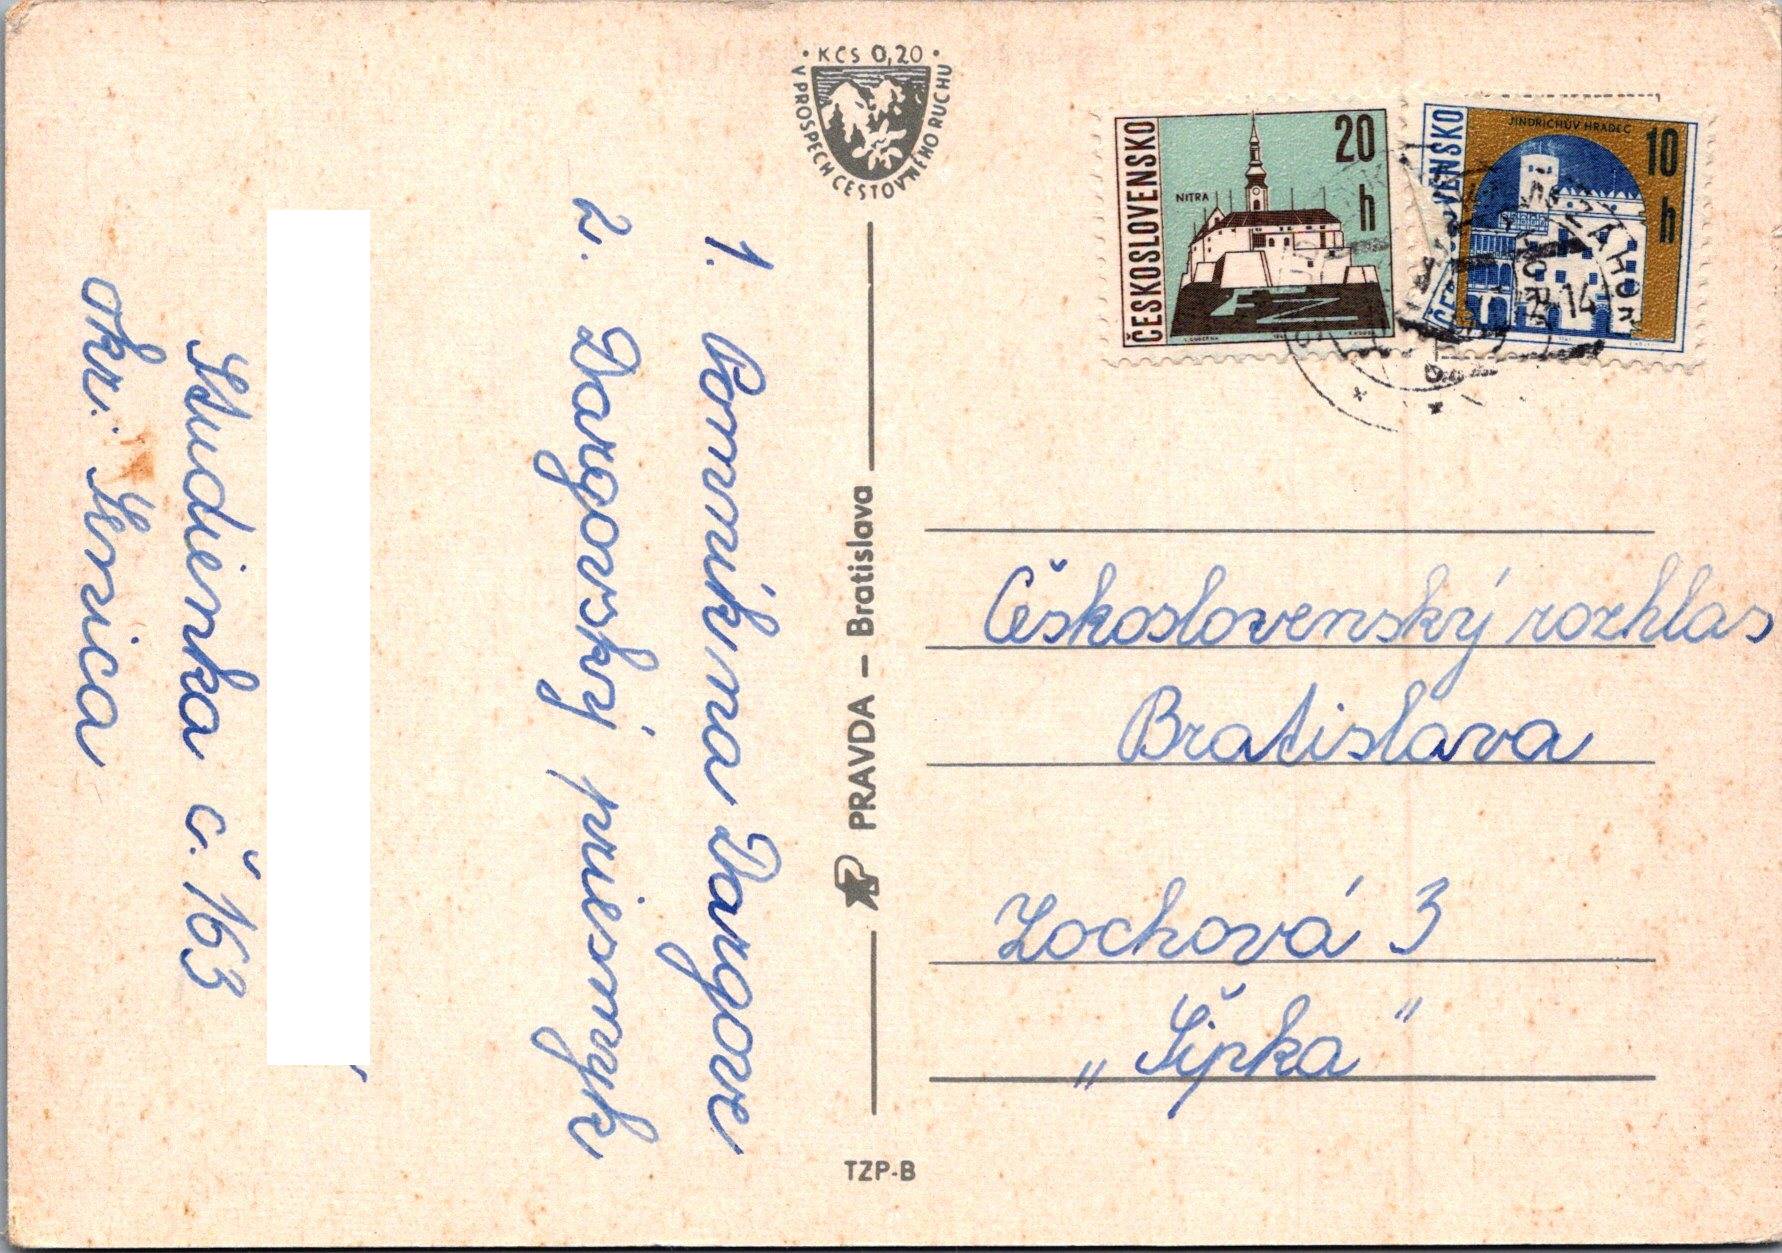 • KČS 0,20 •
V PROSPECH CESTOVNÉHO RUCHU
ČESKOSLOVENSKO
NITRA
20 h
ČESKOSLOVENSKO
JINDŘICHŮV HRADEC
10 h
1. Pomník na Dargove
2. Dargovský priesmyk
Studienka č. 163
okr. Senica
PRAVDA – Bratislava
TZP-B
Československý rozhlas
Bratislava
Zochová 3
„Šípka"